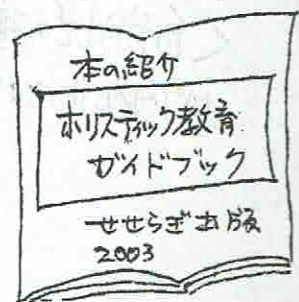 本の紹介
ホリスティック教育
ガイドブック
せせらぎ出版
2003